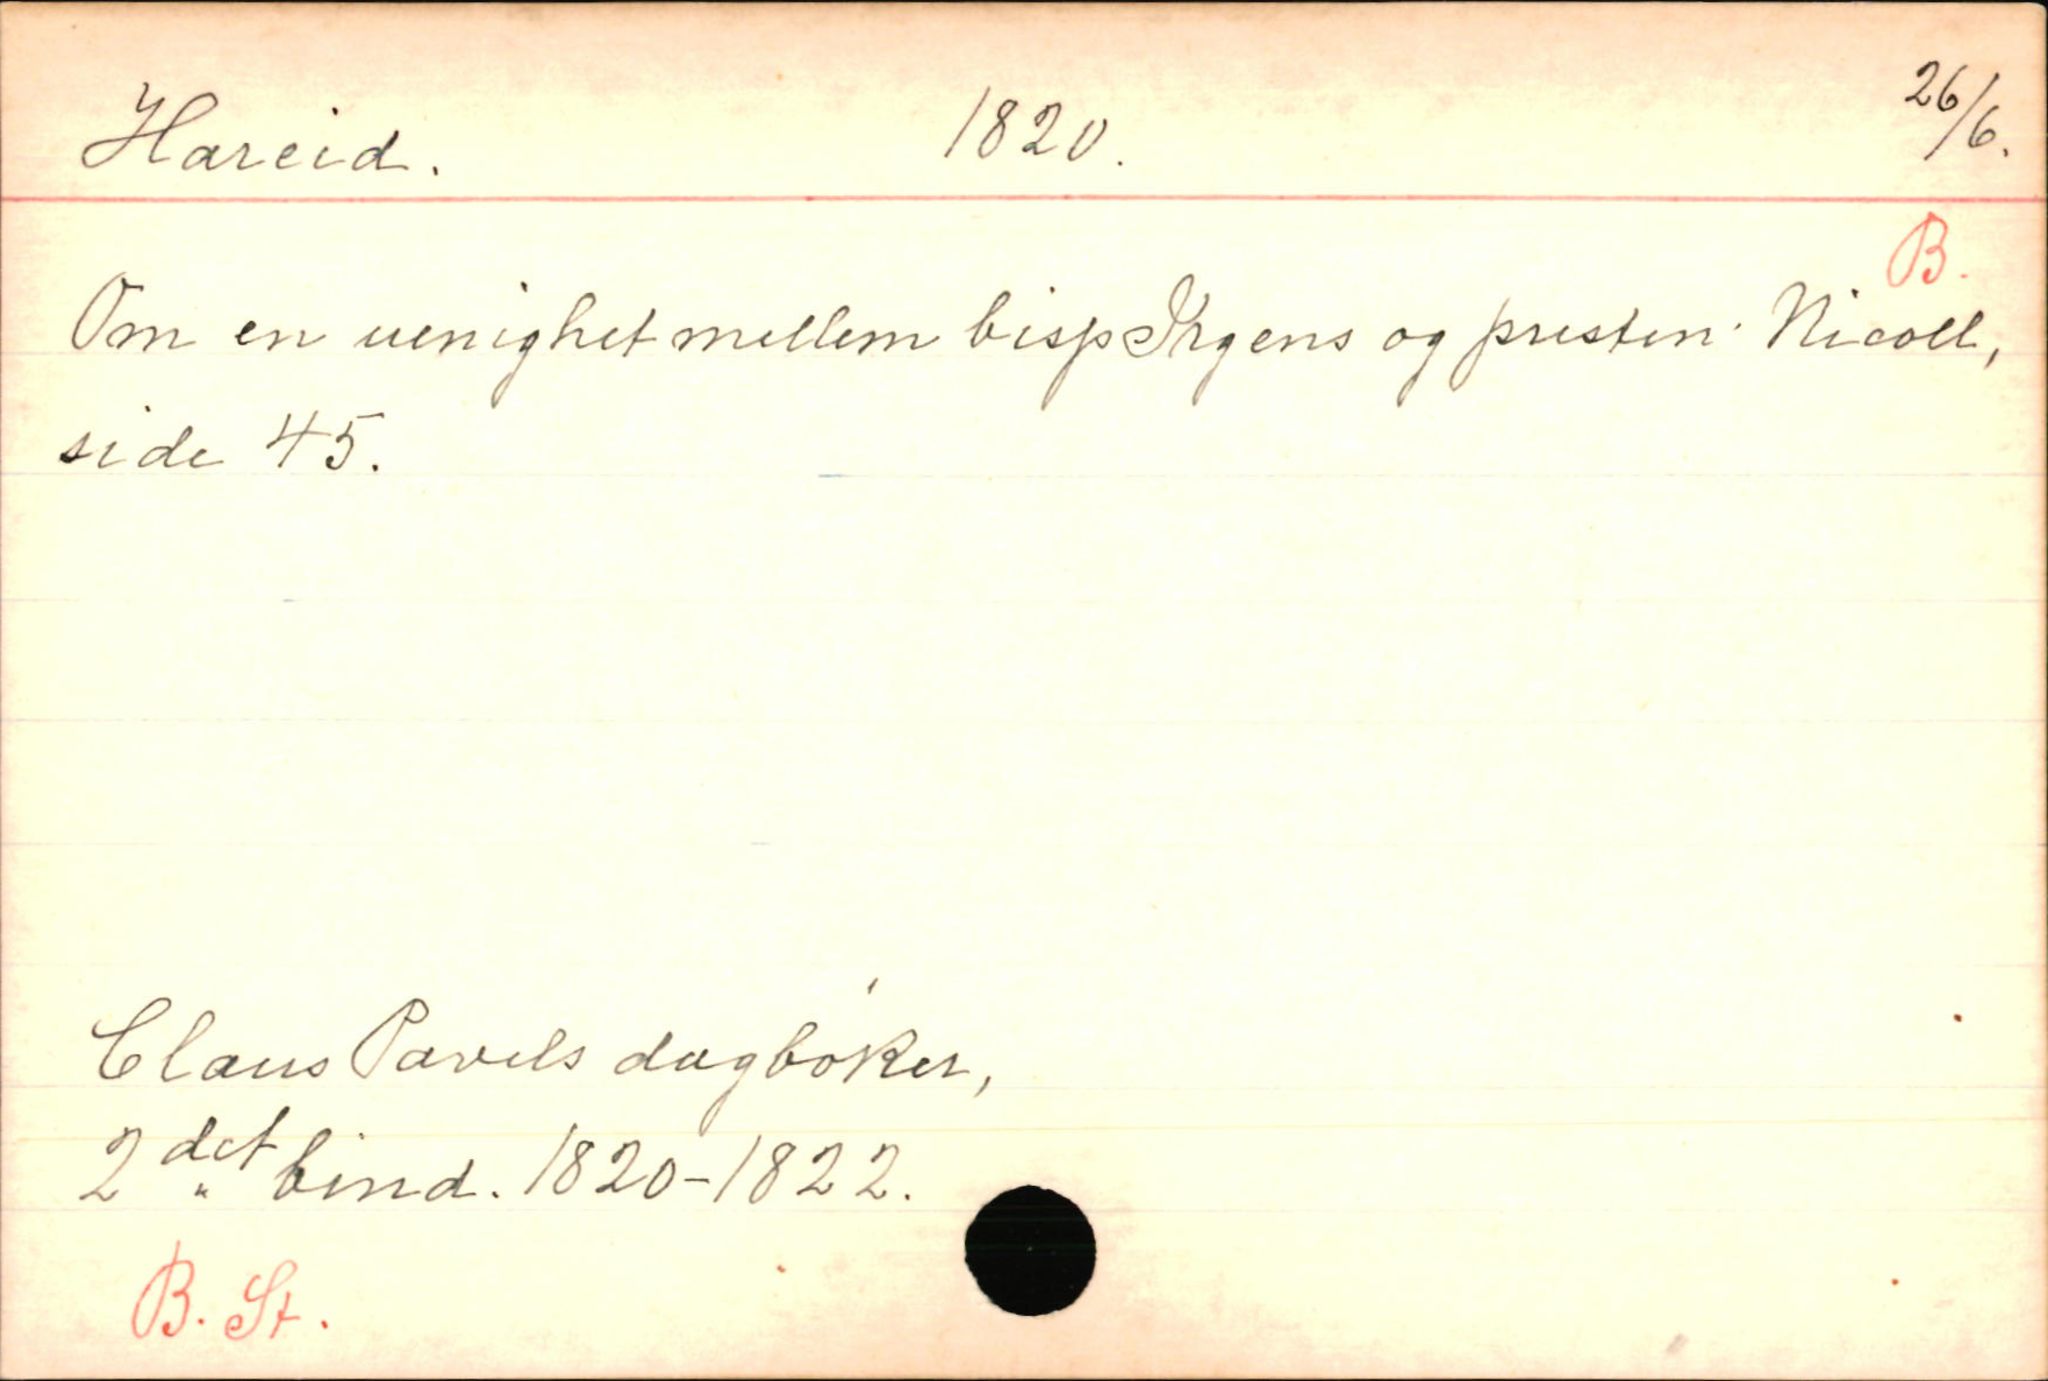 Hareid. 1820. 26/6.
B.
Om en uenighet mellem bisp Irgens og presten Nicoll,
side 45.
Claus Pavels dagböker,
2det bind. 1820-1822.
B. St.